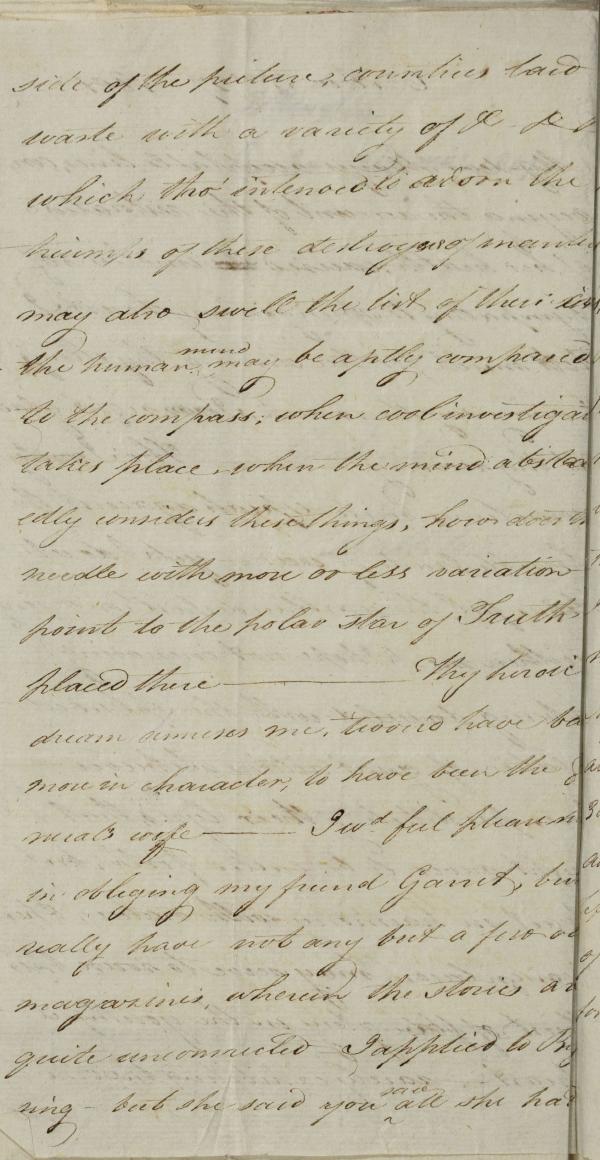 side of the picture, countries laid
waste with a variety of &c &c
which tho' intended to adorn the
triumps of these destroyers of mankin
may also swell the list of their
the human mind may be aptly compared
to the compass; when cool investigat
takes place, when the mind abstra
edly considers these things, how does th
needle with more or less variation
point to the polar star of Truth
placed there — Thy heroic
dream amuses me, twou'd have be
more in character, to have been the ge
neral's wife — I wd feel pleasure
in obliging my friend Garret, but
really have not any but a few od
magazines, wherein the stories ar
quite unconnected I applied to
ning - but she said you said all she had